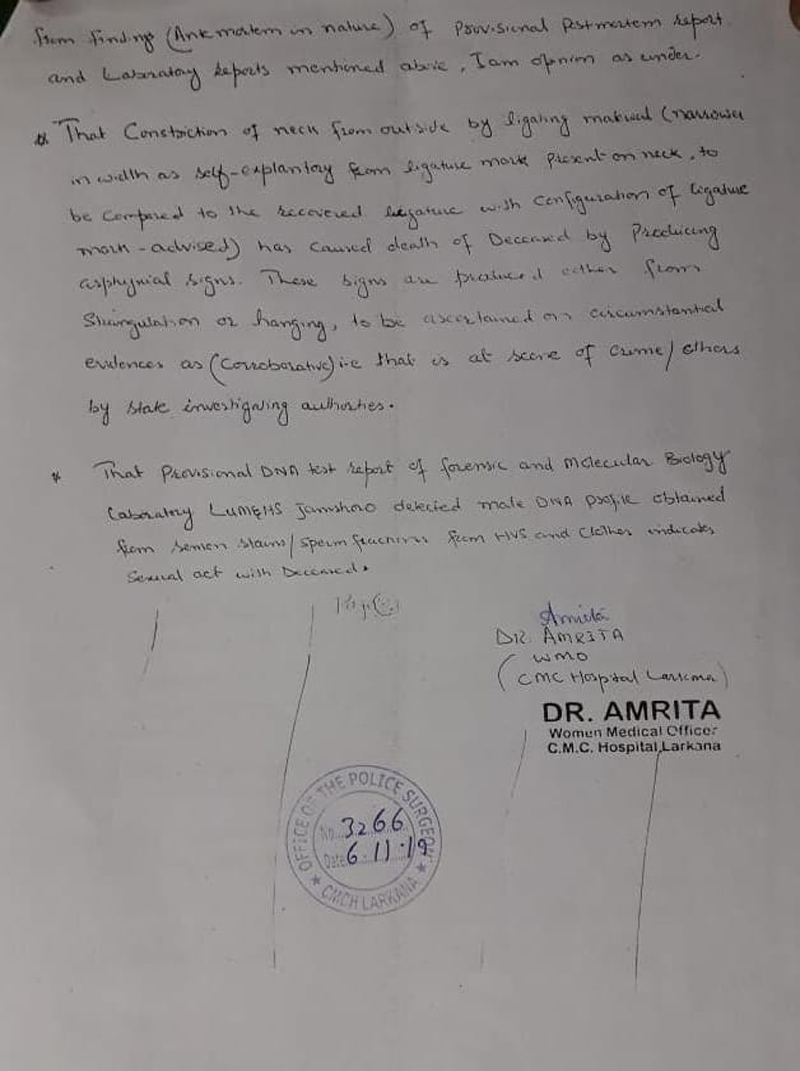 from finding (Ante mortem in nature) of Provisional Postmortem report
and Laboratory Reports mentioned above, I am opinion as under.
* That Constriction of neck from outside by ligating material (narrower
in width as self-explantory from ligature mark Present on neck, to
be compared to the recovered ligature with configuration of ligature
mark - advised) has caused death of Deceased by Producing
asphyxial signs. These signs are produced either from
Strangulation or hanging, to be ascertained on circumstantial
evidences as (Corroborative) i-e that is at scene of crime/others
by state investigating authorties.
* That Provisional DNA test report of forensic and Molecular Biology
Laboratory LUM&HS Jamshoro detected male DNA profile obtained
from semen stains/sperm fractions from HVS and Clothes indicates
Sexual act with Deceased.
Amrita
DR. AMRITA
WMO
(CMC Hospital Larkana)
DR. AMRITA
Women Medical Officer
C.M.C. Hospital, Larkana
OFFICE OF THE POLICE SURGEON
No. 3266
Date 6.11.19
CMCH LARKANA